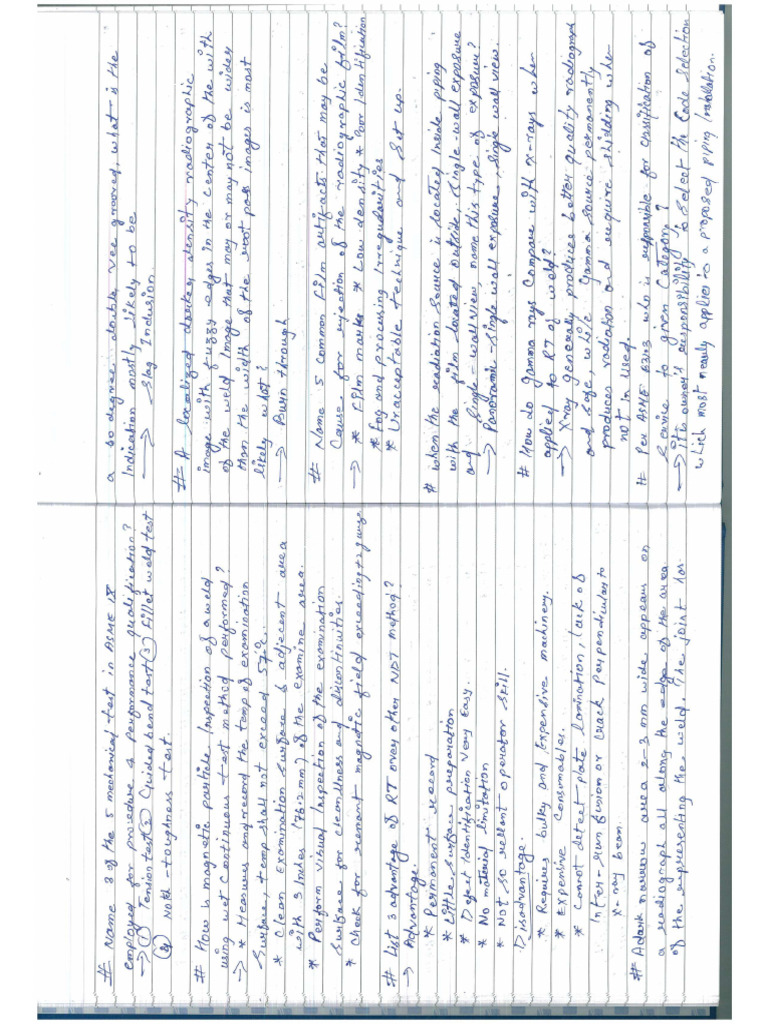 # Name 3 of the 5 mechanical test in ASME IX
employed for procedure & performance qualification?
→ ① Tension test ② Guided bend test ③ Fillet weld test
④ Notch-toughness test.
# How is magnetic particle inspection of a weld
using wet continuous test method performed?
→ * Measures and record the temp of examination
surface, temp shall not exceed 57°c.
* Clean Examination surface & adjecent area
with 3 Inches (76.2 mm) of the examine area.
* Perform visual Inspection of the examination
surface for cleanliness and discontinuities.
* Check for remenant magnetic field exceeding ±2 gauge
# List 3 advantage of RT over other NDT method?
→ Advantage:
* Permanent record
* Little surface preparation
* Defect Identification Very Easy.
* No material limitation
* Not so reliant operator skill.
Disadvantage:
* Requires bulky and Expensive machinery.
* Expensive Consumables.
* Cannot detect plate lamination, lack of
Inter-run fusion or crack perpendicular to
x-ray beam.
# A dark narrow area 2-3 mm wide appears on
a readiograph all along the edge of the area
of the representing the weld. The joint has
a 30 degree double vee grooved, what is the
Indication mostly likely to be
→ Slag Inclusion.
# A localized darker density radiographic
image with fuzzy edges in the center of the with
of the weld Image that may or may not be wider
than the width of the root pass images is most
likely what?
→ Burn through
# Name 5 common film artifacts that may be
Cause for rejection of the radiographic film?
→ * Film marks * Low density * Poor Identification
* Fog and processing Irregularities
* Unacceptable technique and Set up.
# when the rediation source is located inside piping
with the film located outside, single-wall exposure
and single-wall view, name this type of exposure?
→ Panoramic-Single wall exposure, single wall view.
# How do gamma rays Compare with x-rays when
applied to RT of weld?
→ X ray generaly produces better quality radiograph
and safe, while Gamma source permanently
produces radiation and require shilding when
not in used.
# Per ASME B31.3 who is responsible for classification of
Service to given Category?
→ It's owner's responsibility to select the Code Selection
which most nearly applies to a proposed piping Installation.